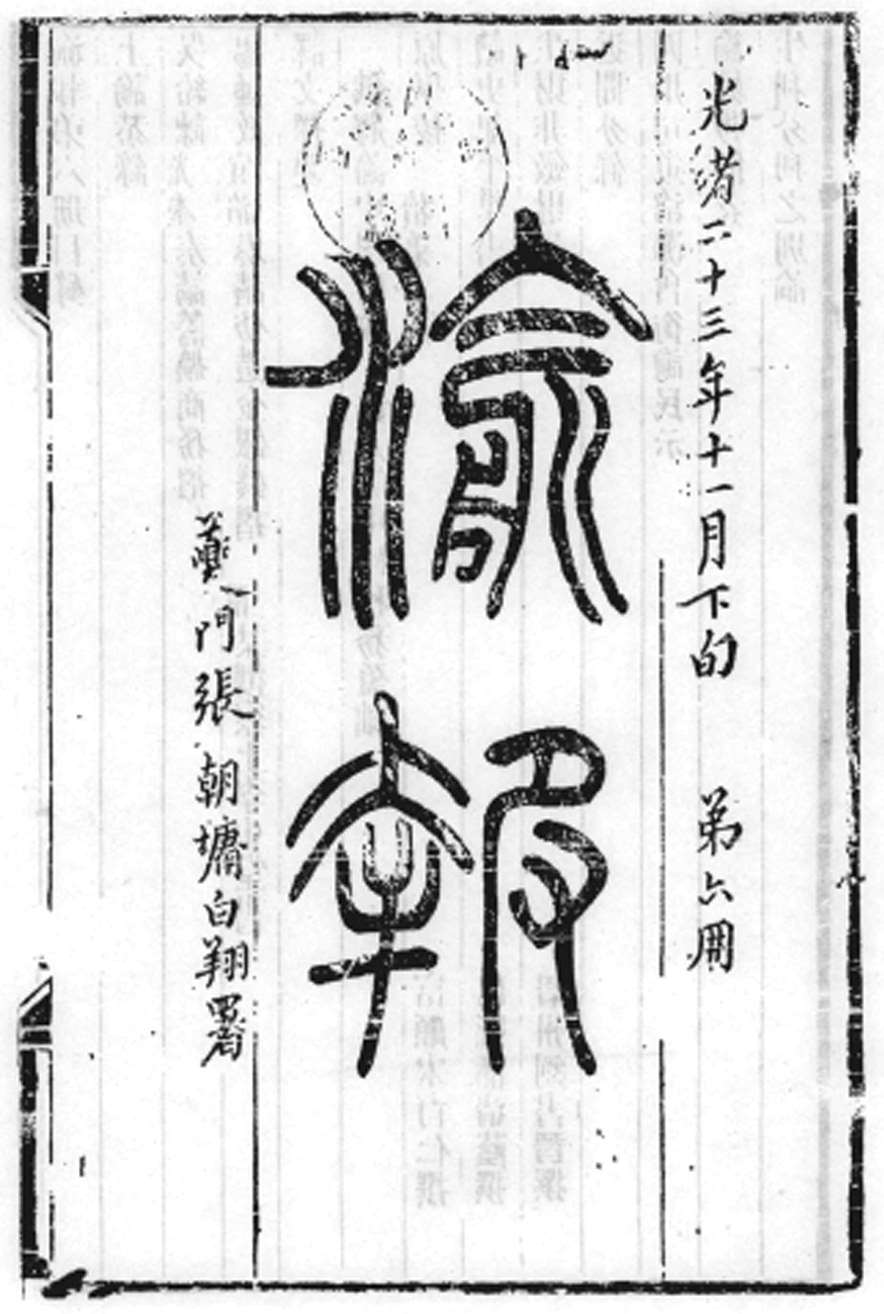 光緒二十三年十一月下旬 弟六冊
渝報
夔門張朝墉白翔署